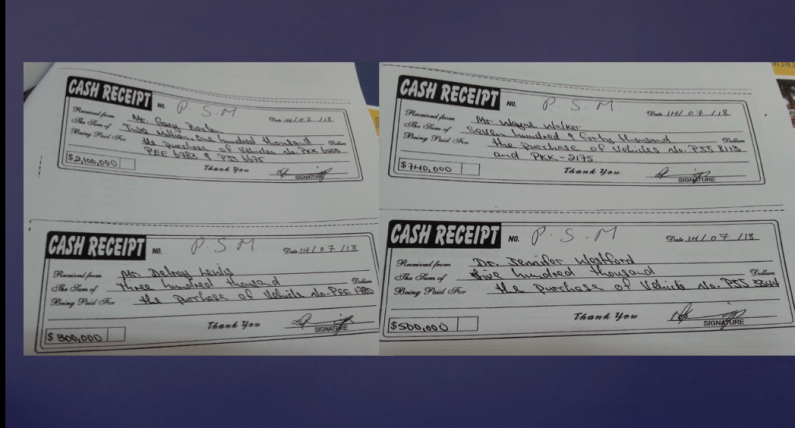 CASH RECEIPT NO. P S M
Received from Mr. Gary
The Sum of Two Million One hundred thousand Dollars
Being Paid For the purchase of Vehicles No. PKK
PEE 6983 & P33 6675
$2,100,000 Thank You
SIGNATURE
CASH RECEIPT NO. P S M Date 14/07/18
Received from Mr. Wayne Walker
The Sum of Seven hundred & forty thousand Dollars
Being Paid For the purchase of Vehicles No. P35 8113
and PKK-2175
$740,000 Thank You
SIGNATURE
CASH RECEIPT NO. P.S.M Date 14/07/18
Received from Mr. Delroy Lewis
The Sum of Three hundred thousand Dollars
Being Paid For the purchase of Vehicle No.
$300,000 Thank You
SIGNATURE
CASH RECEIPT NO. P.S.M Date 14/07/18
Received from Dr. Jennifer Westford
The Sum of five hundred thousand Dollars
Being Paid For the purchase of Vehicle No.
$500,000 Thank You
SIGNATURE